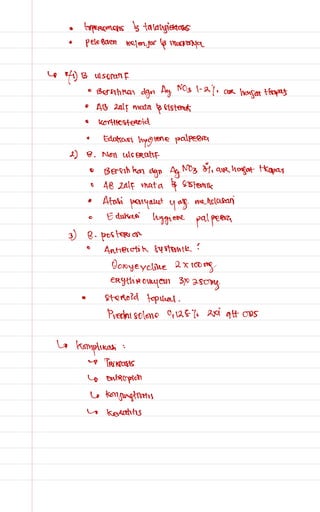 • hiperemesis → talangiektasis
• pelebaran kelenjar → meibom
↳ Tx/ 1) B ulseratif
• Bersihkan dgn Ag NO3 1-2%, air hangat + kapas
• AB zalf mata & sistemik
• kortikosteroid
• Edukasi hygiene palpebra
2) B. Non ulseratif
• Bersihkan dgn Ag NO3 %, air hangat + kapas
• AB zalf mata & sistemik
• Atasi penyakit yang melatari
• Edukasi hygiene palpebra
3) B. posterior
• Antibiotik sistemik :
Doxycycline 2 x 100 mg
Erythromycin 3x 250mg
• steroid topikal.
Prednisolone 0,125% 2x1 gtt ODS
↳ Komplikasi :
↳ Trikiasis
↳ entropion
↳ konjungtivitis
↳ keratitis